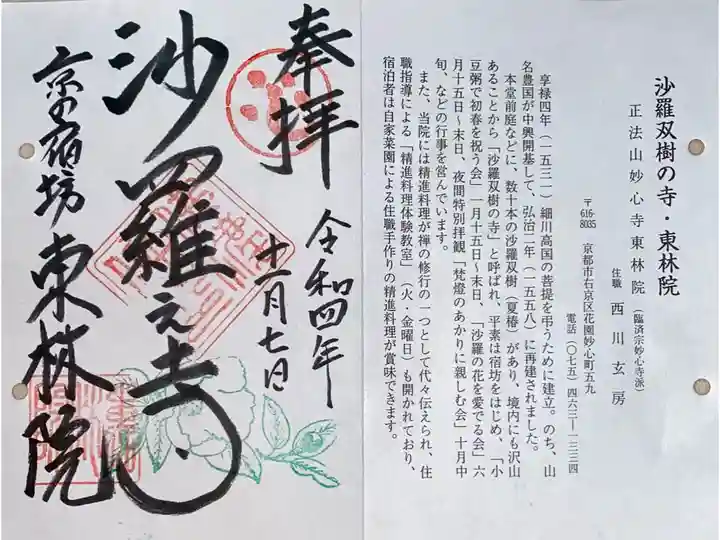 沙羅双樹の寺・東林院
正法山妙心寺東林院(臨済宗妙心寺派)
住職 西川玄房
〒616-8035 京都市右京区花園妙心町五九
電話(〇七五)四六三―一三三四
享禄四年(一五三一)細川高国の菩提を弔うために建立。のち、山
名豊国が中興開基して、弘治二年(一五五八)に再建されました。
本堂前庭などに、数十本の沙羅双樹(夏椿)があり、境内にも沢山
あることから「沙羅双樹の寺」と呼ばれ、平素は宿坊をはじめ、「小
豆粥で初春を祝う会」一月十五日~末日、「沙羅の花を愛でる会」六
月十五日~末日、夜間特別拝観「梵燈のあかりに親しむ会」十月中
旬、などの行事を営んでいます。
また、当院には精進料理が禅の修行の一つとして代々伝えられ、住
職指導による「精進料理体験教室」(火・金曜日)も開かれており、
宿泊者は自家菜園による住職手作りの精進料理が賞味できます。
奉拝
令和四年
十一月七日
沙羅之寺
京の宿坊 東林院